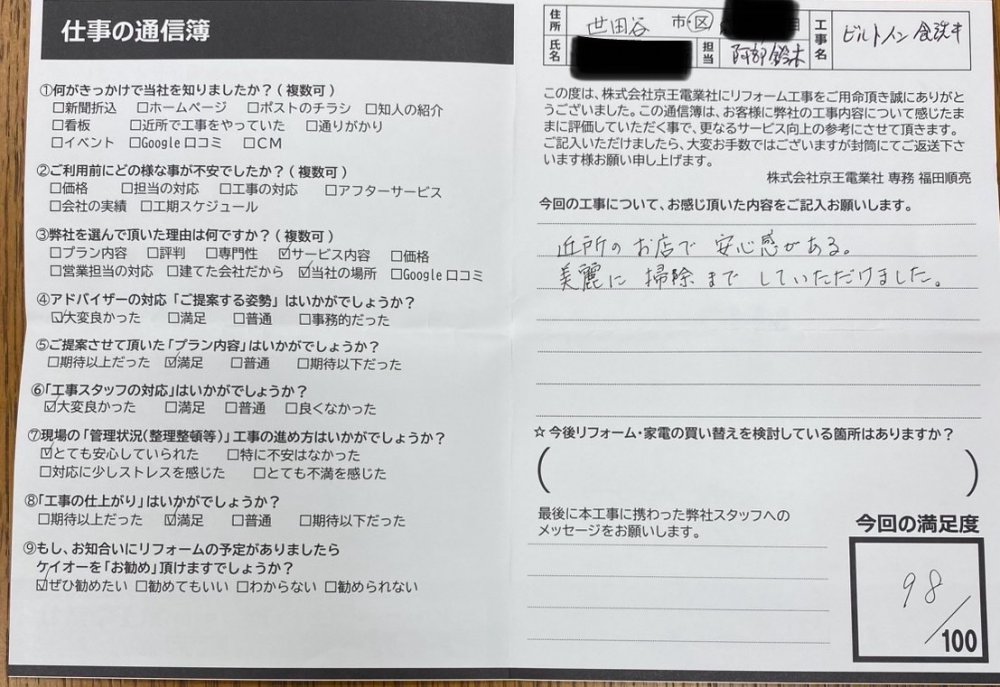 仕事の通信簿
①何がきっかけで当社を知りましたか？（複数可）
□新聞折込 □ホームページ □ポストのチラシ □知人の紹介
□看板 □近所で工事をやっていた □通りがかり
□イベント □Google口コミ □ＣＭ
②ご利用前にどの様な事が不安でしたか？（複数可）
□価格 □担当の対応 □工事の対応 □アフターサービス
□会社の実績 □工期スケジュール
③弊社を選んで頂いた理由は何ですか？（複数可）
□プラン内容 □評判 □専門性 ☑サービス内容 □価格
□営業担当の対応 □建てた会社だから ☑当社の場所 □Google口コミ
④アドバイザーの対応「ご提案する姿勢」はいかがでしょうか？
☑大変良かった □満足 □普通 □事務的だった
⑤ご提案させて頂いた「プラン内容」はいかがでしょうか？
□期待以上だった ☑満足 □普通 □期待以下だった
⑥「工事スタッフの対応」はいかがでしょうか？
☑大変良かった □満足 □普通 □良くなかった
⑦現場の「管理状況（整理整頓等）」工事の進め方はいかがでしょうか？
☑とても安心していられた □特に不安はなかった
□対応に少しストレスを感じた □とても不満を感じた
⑧「工事の仕上がり」はいかがでしょうか？
□期待以上だった ☑満足 □普通 □期待以下だった
⑨もし、お知合いにリフォームの予定がありましたら
ケイオーを「お勧め」頂けますでしょうか？
☑ぜひ勧めたい □勧めてもいい □わからない □勧められない
住所 世田谷 市・区
氏名 担当 阿部 鈴木
工事名 ビルトイン食洗キ
この度は、株式会社京王電業社にリフォーム工事をご用命頂き誠にありがと
うございました。この通信簿は、お客様に弊社の工事内容について感じたま
まに評価していただく事で、更なるサービス向上の参考にさせて頂きます。
ご記入いただけましたら、大変お手数ではございますが封筒にてご返送下さ
います様お願い申し上げます。
株式会社京王電業社 専務 福田順亮
今回の工事について、お感じ頂いた内容をご記入お願いします。
近所のお店で 安心感がある。
美麗に 掃除まで していただけました。
☆今後リフォーム・家電の買い替えを検討している箇所はありますか？
（ ）
最後に本工事に携わった弊社スタッフへの
メッセージをお願いします。
今回の満足度
98/100